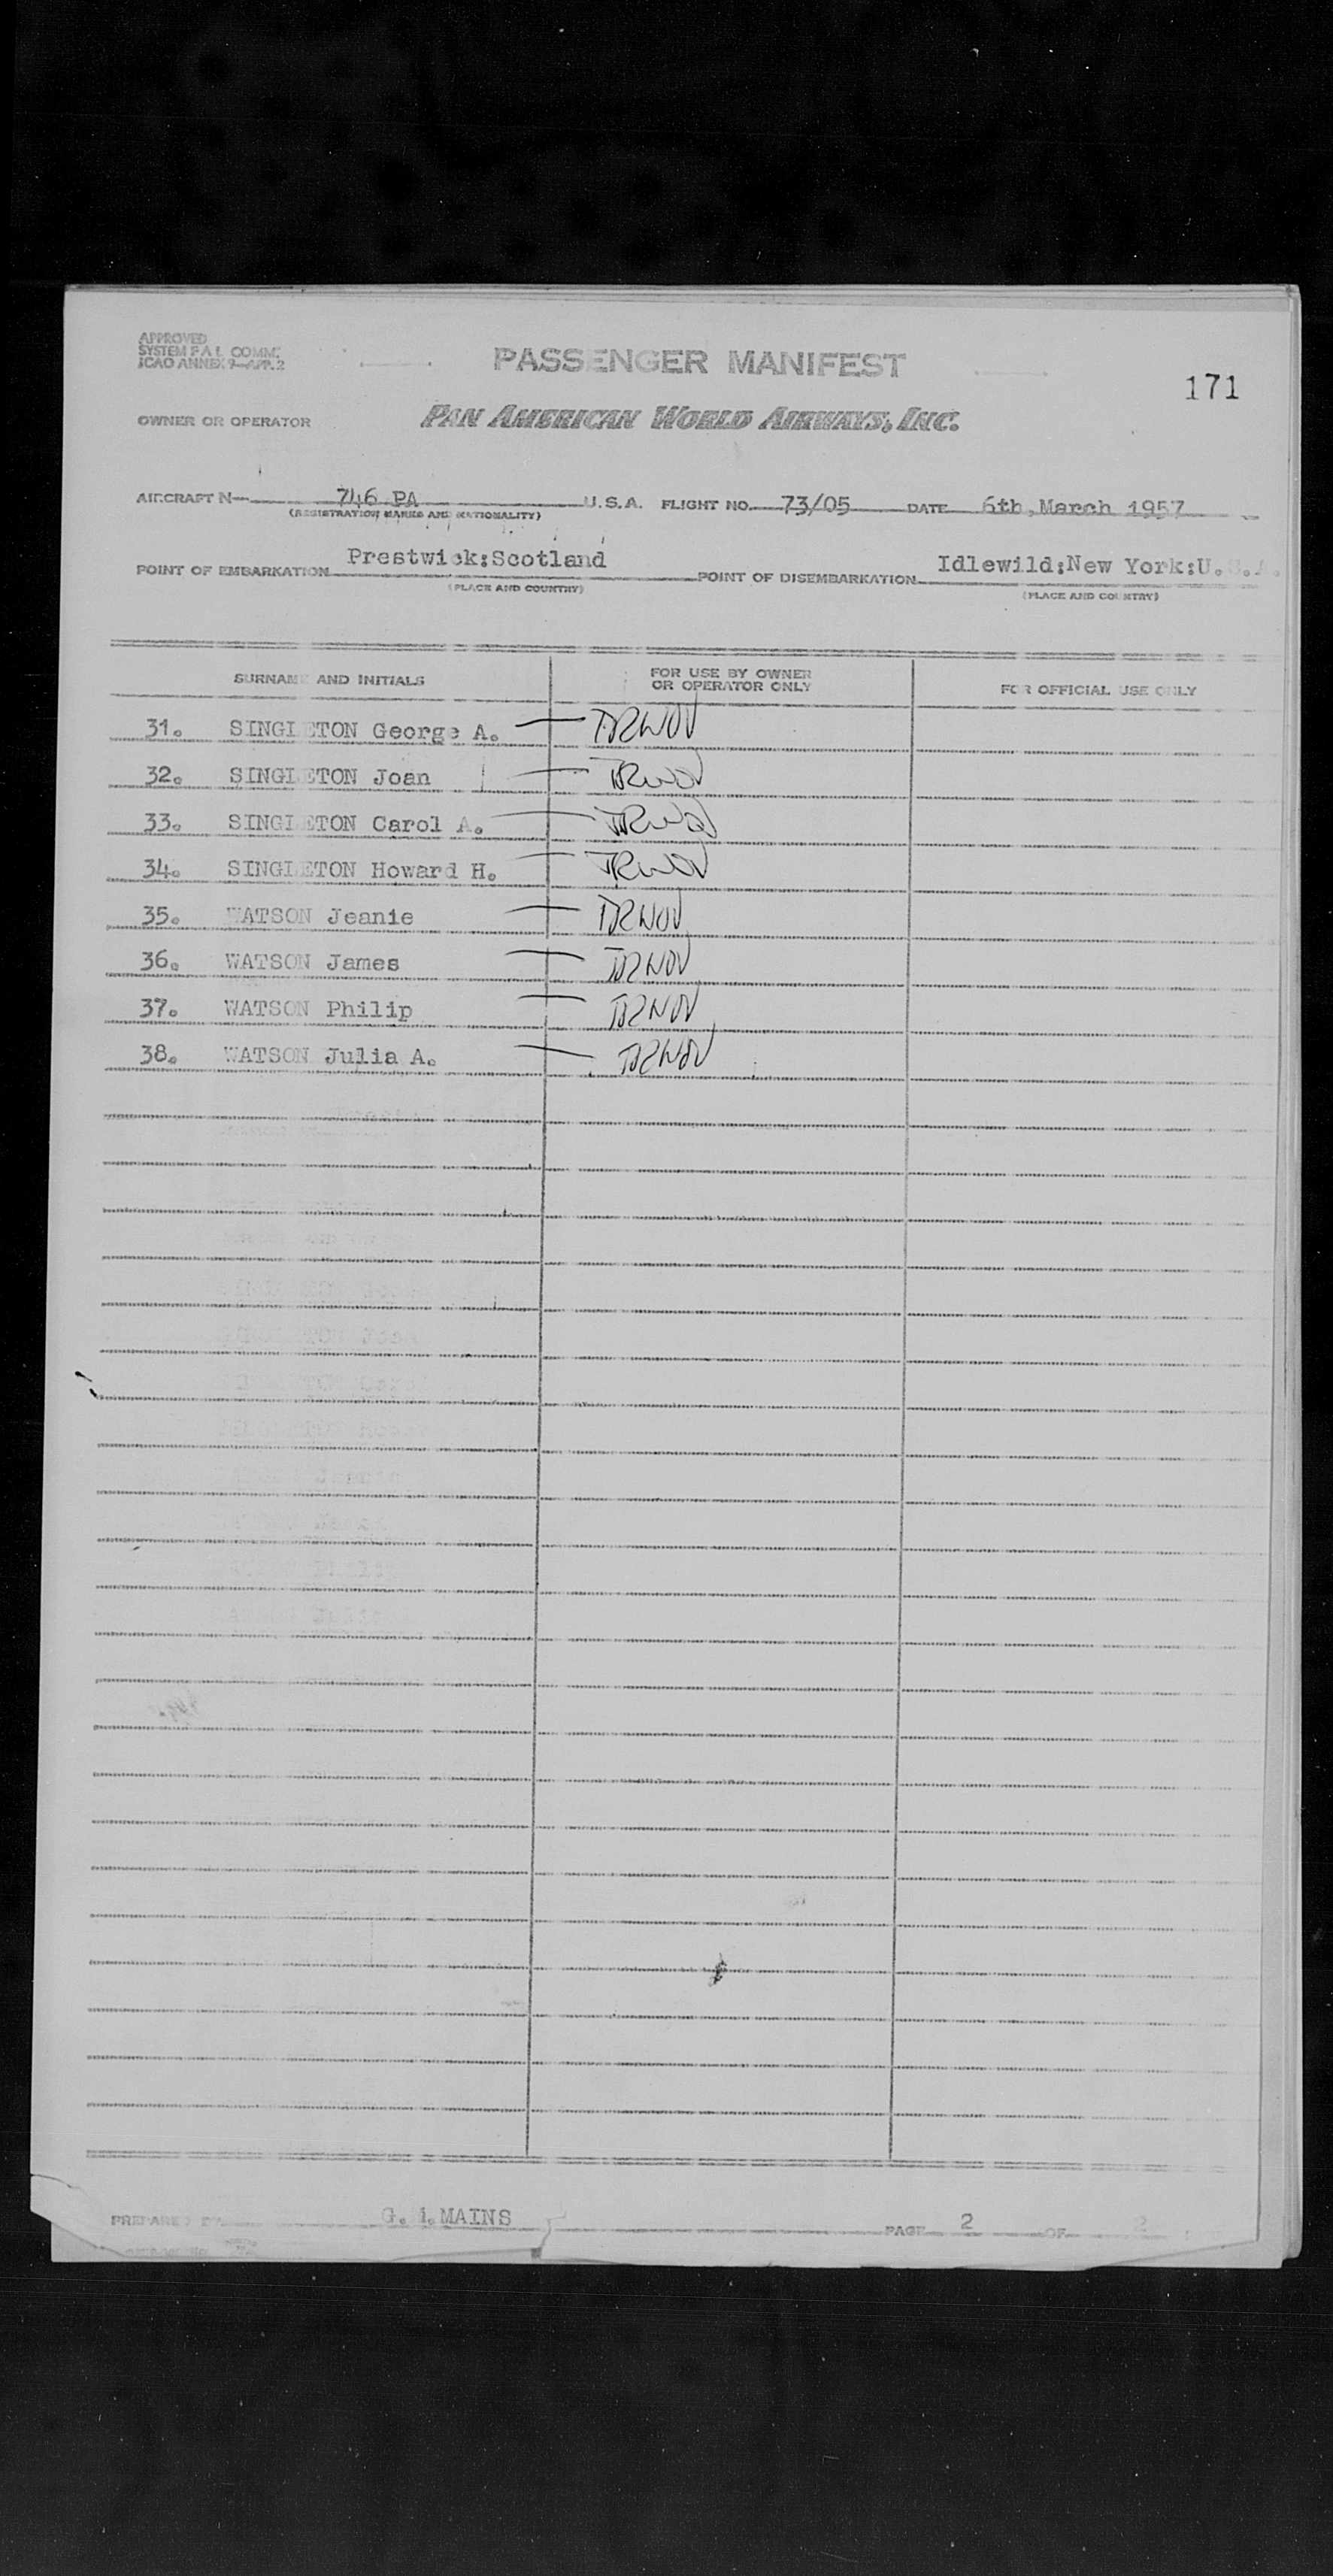 APPROVED
SYSTEM P.A.L. COMM.
ICAO ANNEX 9—APP. 2
PASSENGER MANIFEST
171
OWNER OR OPERATOR
PAN AMERICAN WORLD AIRWAYS, INC.
AIRCRAFT N— 746 PA U.S.A. FLIGHT NO. 73/05 DATE 6th, March 1957
(REGISTRATION MARKS AND NATIONALITY)
POINT OF EMBARKATION Prestwick:Scotland POINT OF DISEMBARKATION Idlewild:New York:U.S.A.
(PLACE AND COUNTRY) (PLACE AND COUNTRY)
SURNAME AND INITIALS FOR USE BY OWNER OR OPERATOR ONLY FOR OFFICIAL USE ONLY
31. SINGLETON George A.
32. SINGLETON Joan
33. SINGLETON Carol A.
34. SINGLETON Howard H.
35. WATSON Jeanie
36. WATSON James
37. WATSON Philip
38. WATSON Julia A.
PREPARED BY G. MAINS PAGE 2 OF 2